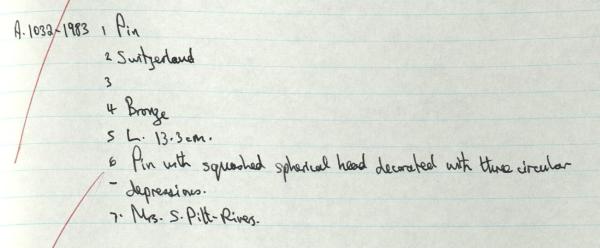 A.1032-1983 1 Pin
2 Switzerland
3
4 Bronze
5 L. 13.3cm.
6 Pin with squashed spherical head decorated with three circular
- depressions.
7. Mrs. S. Pitt-Rivers.